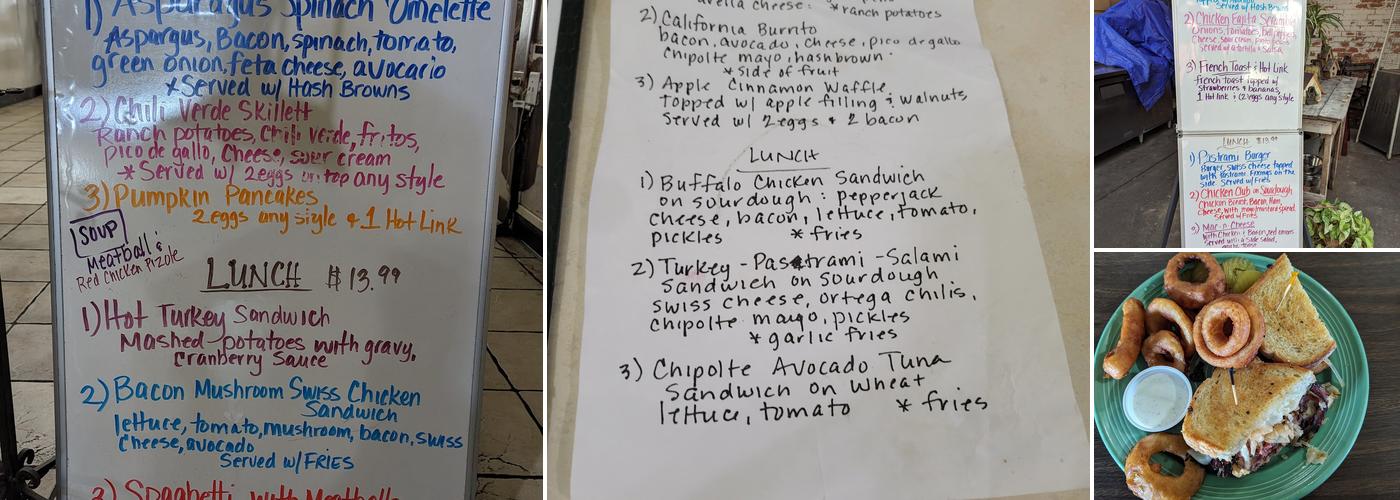 1) Asparagus Spinach Omelette
Aspargus, Bacon, spinach, tomato,
green onion, feta cheese, avocario
*Served w/ Hash Browns
2) Chili Verde Skillett
Ranch potatoes, Chili verde, fritos,
pico de gallo, Cheese, sour cream
*Served w/ 2eggs on top any style
3) Pumpkin Pancakes
2eggs any style & 1 Hot Link
SOUP
Meatball &
Red Chicken Pizole
LUNCH $13.99
1) Hot Turkey Sandwich
Mashed potatoes with gravy,
Cranberry Sauce
2) Bacon Mushroom Swiss Chicken
Sandwich
lettuce, tomato, mushroom, bacon, swiss
Cheese, avocado
Served w/ FRIES
3) Spaghetti with Meatballs
cheese: *ranch potatoes
2) California Burrito
bacon, avocado, cheese, pico de gallo
chipolte mayo, hashbrown
*Side of fruit
3) Apple Cinnamon Waffle
topped w/ apple filling & walnuts
Served w/ 2eggs & 2 bacon
LUNCH
1) Buffalo Chicken Sandwich
on sourdough: pepperjack
cheese, bacon, lettuce, tomato,
pickles *fries
2) Turkey - Pastrami - Salami
Sandwich on Sourdough
swiss cheese, ortega chilis,
chipolte mayo, pickles
*garlic fries
3) Chipolte Avocado Tuna
Sandwich on wheat
lettuce, tomato *fries
Served w/ Hash Browns
2) Chicken Fajita Scramble
Onions, tomatoes, bell peppers,
Cheese, sour cream,
Served w/ tortilla & Salsa
3) French Toast & Hot Link
French toast topped w/
Strawberries & bananas,
1 Hot link & (2) eggs any style
LUNCH $13.99
1) Pastrami Burger
Burger, swiss cheese topped
with Pastrami. Fixings on the
Side. Served w/ Fries
2) Chicken Club on Sourdough
Chicken Breast, Bacon, Ham,
Cheese, with mayo/mustard spread.
Served w/ Fries
3) Mac-n-Cheese
with Chicken & Bacon, red onions
Served w/ a side salad,